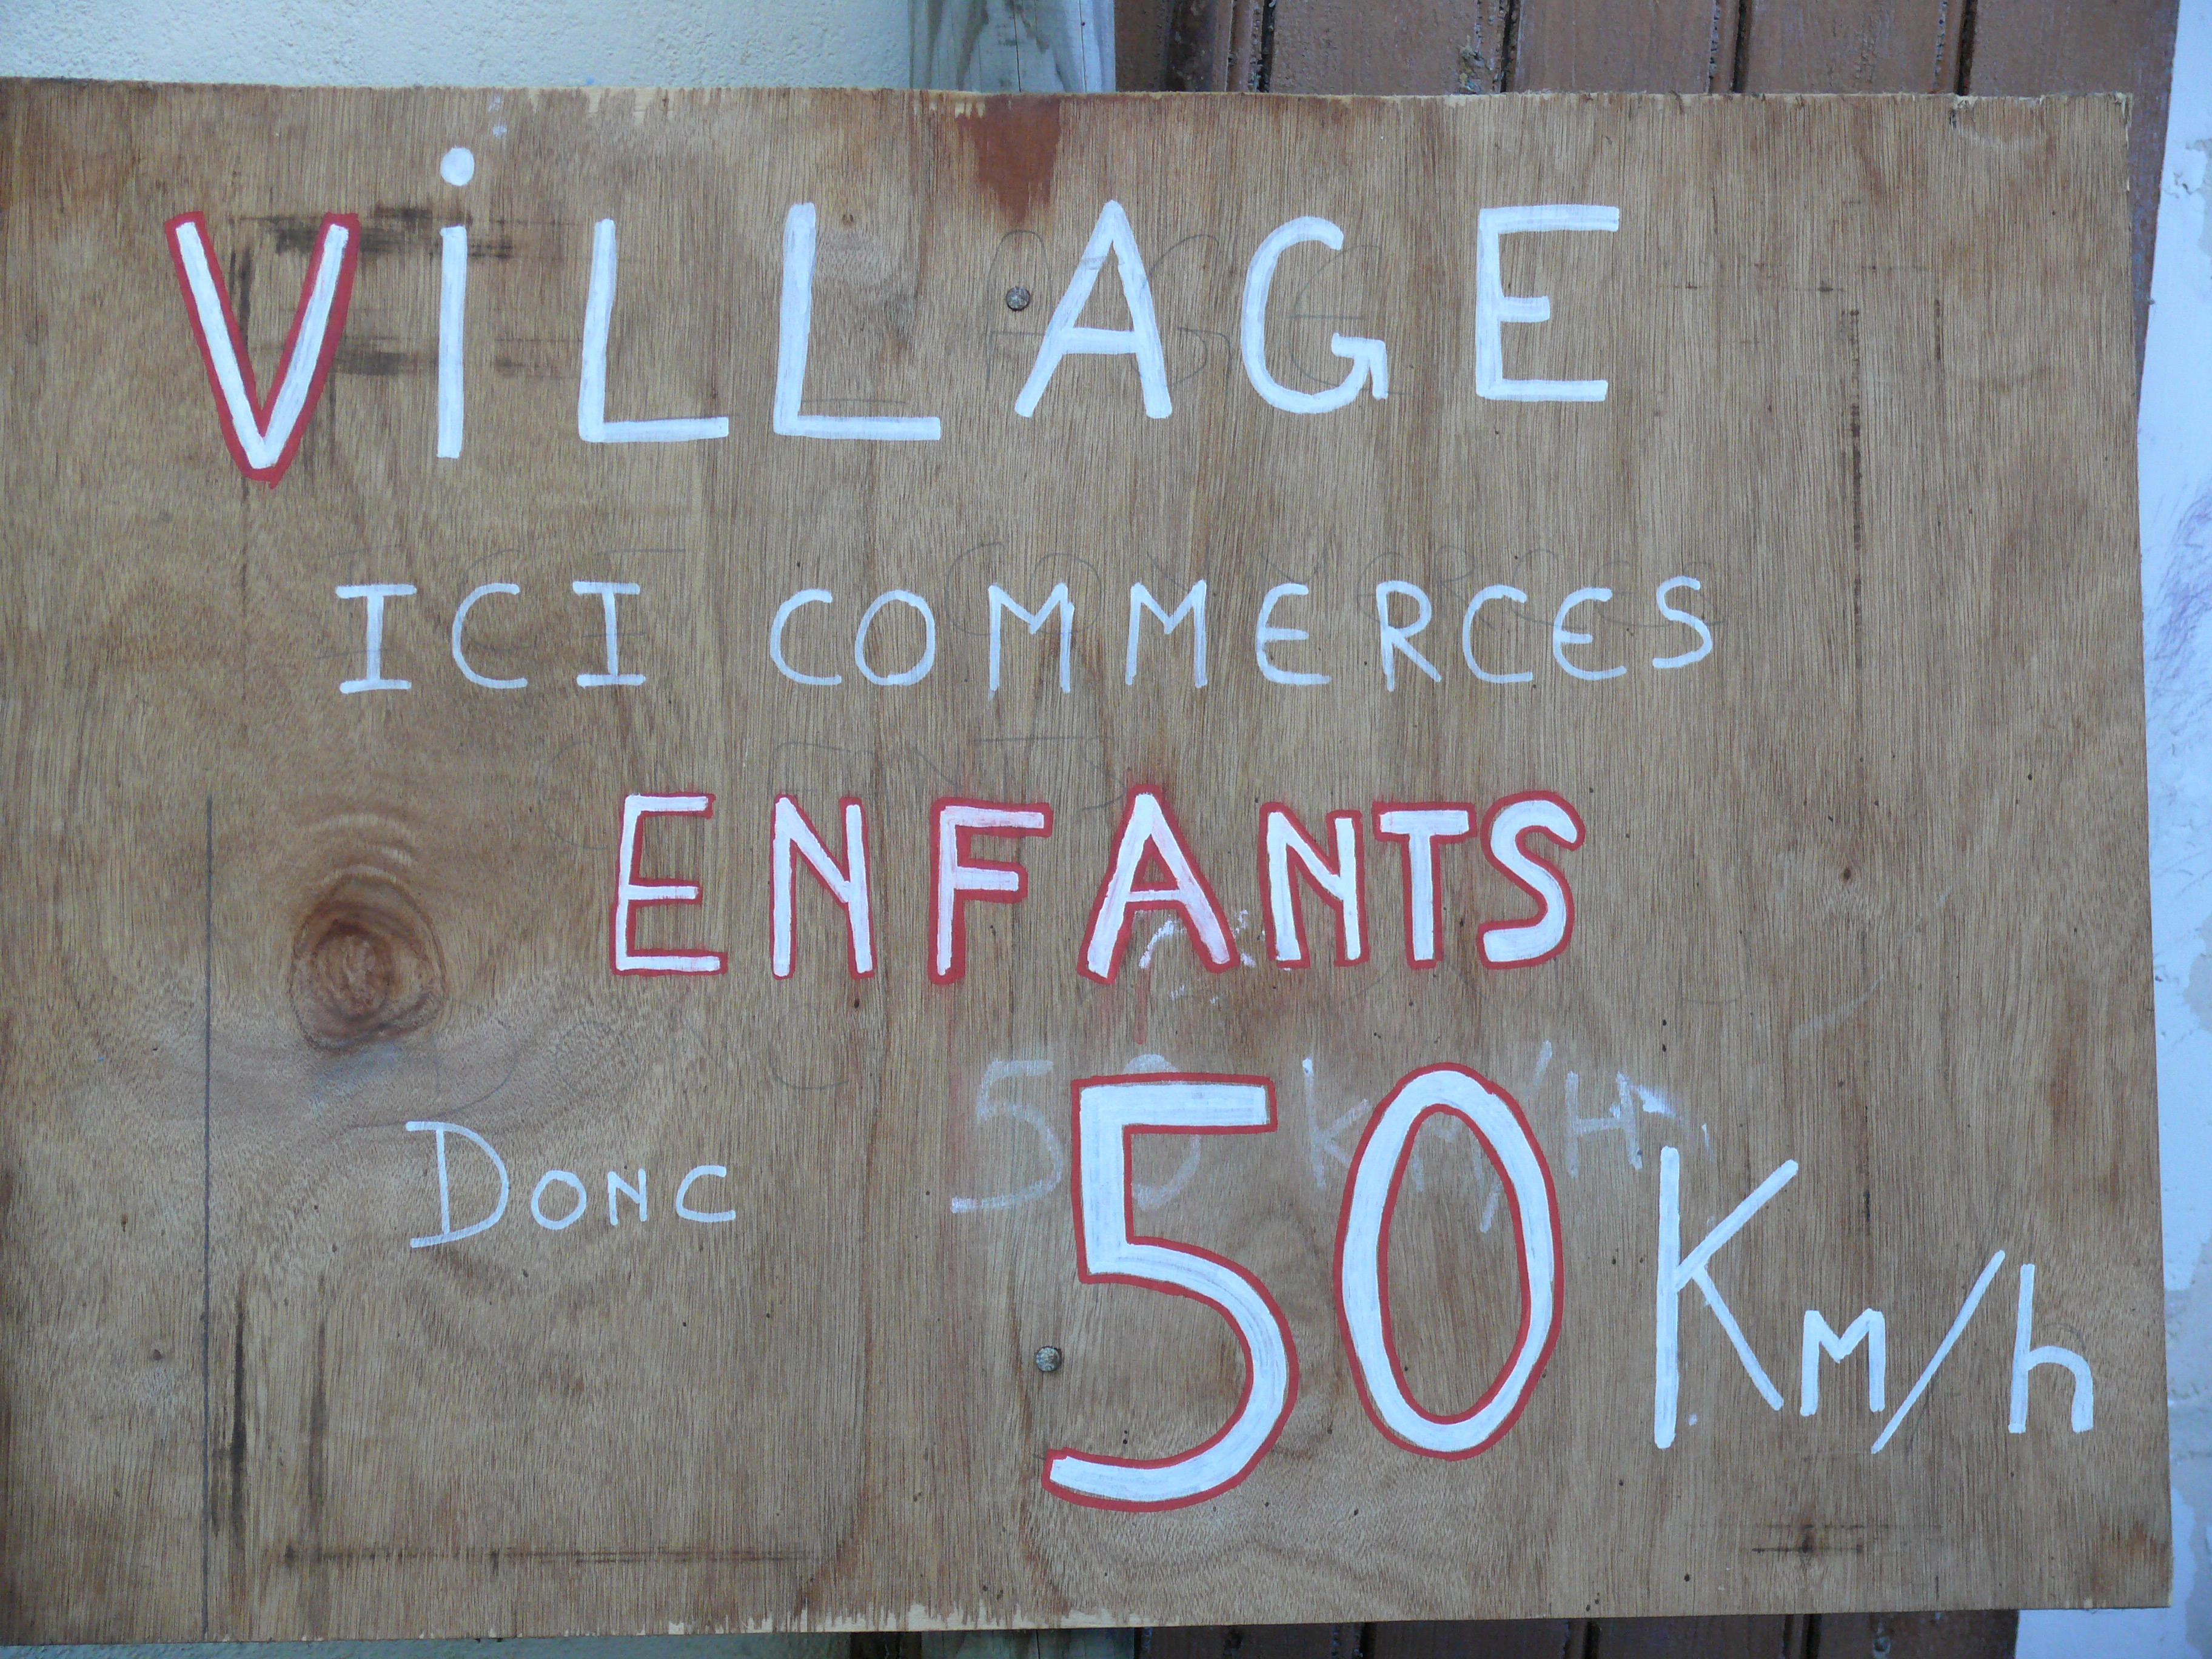 ViLLAGE
ICI COMMERCES
ENFANTS
50 km/H
DONC 50 Km/h